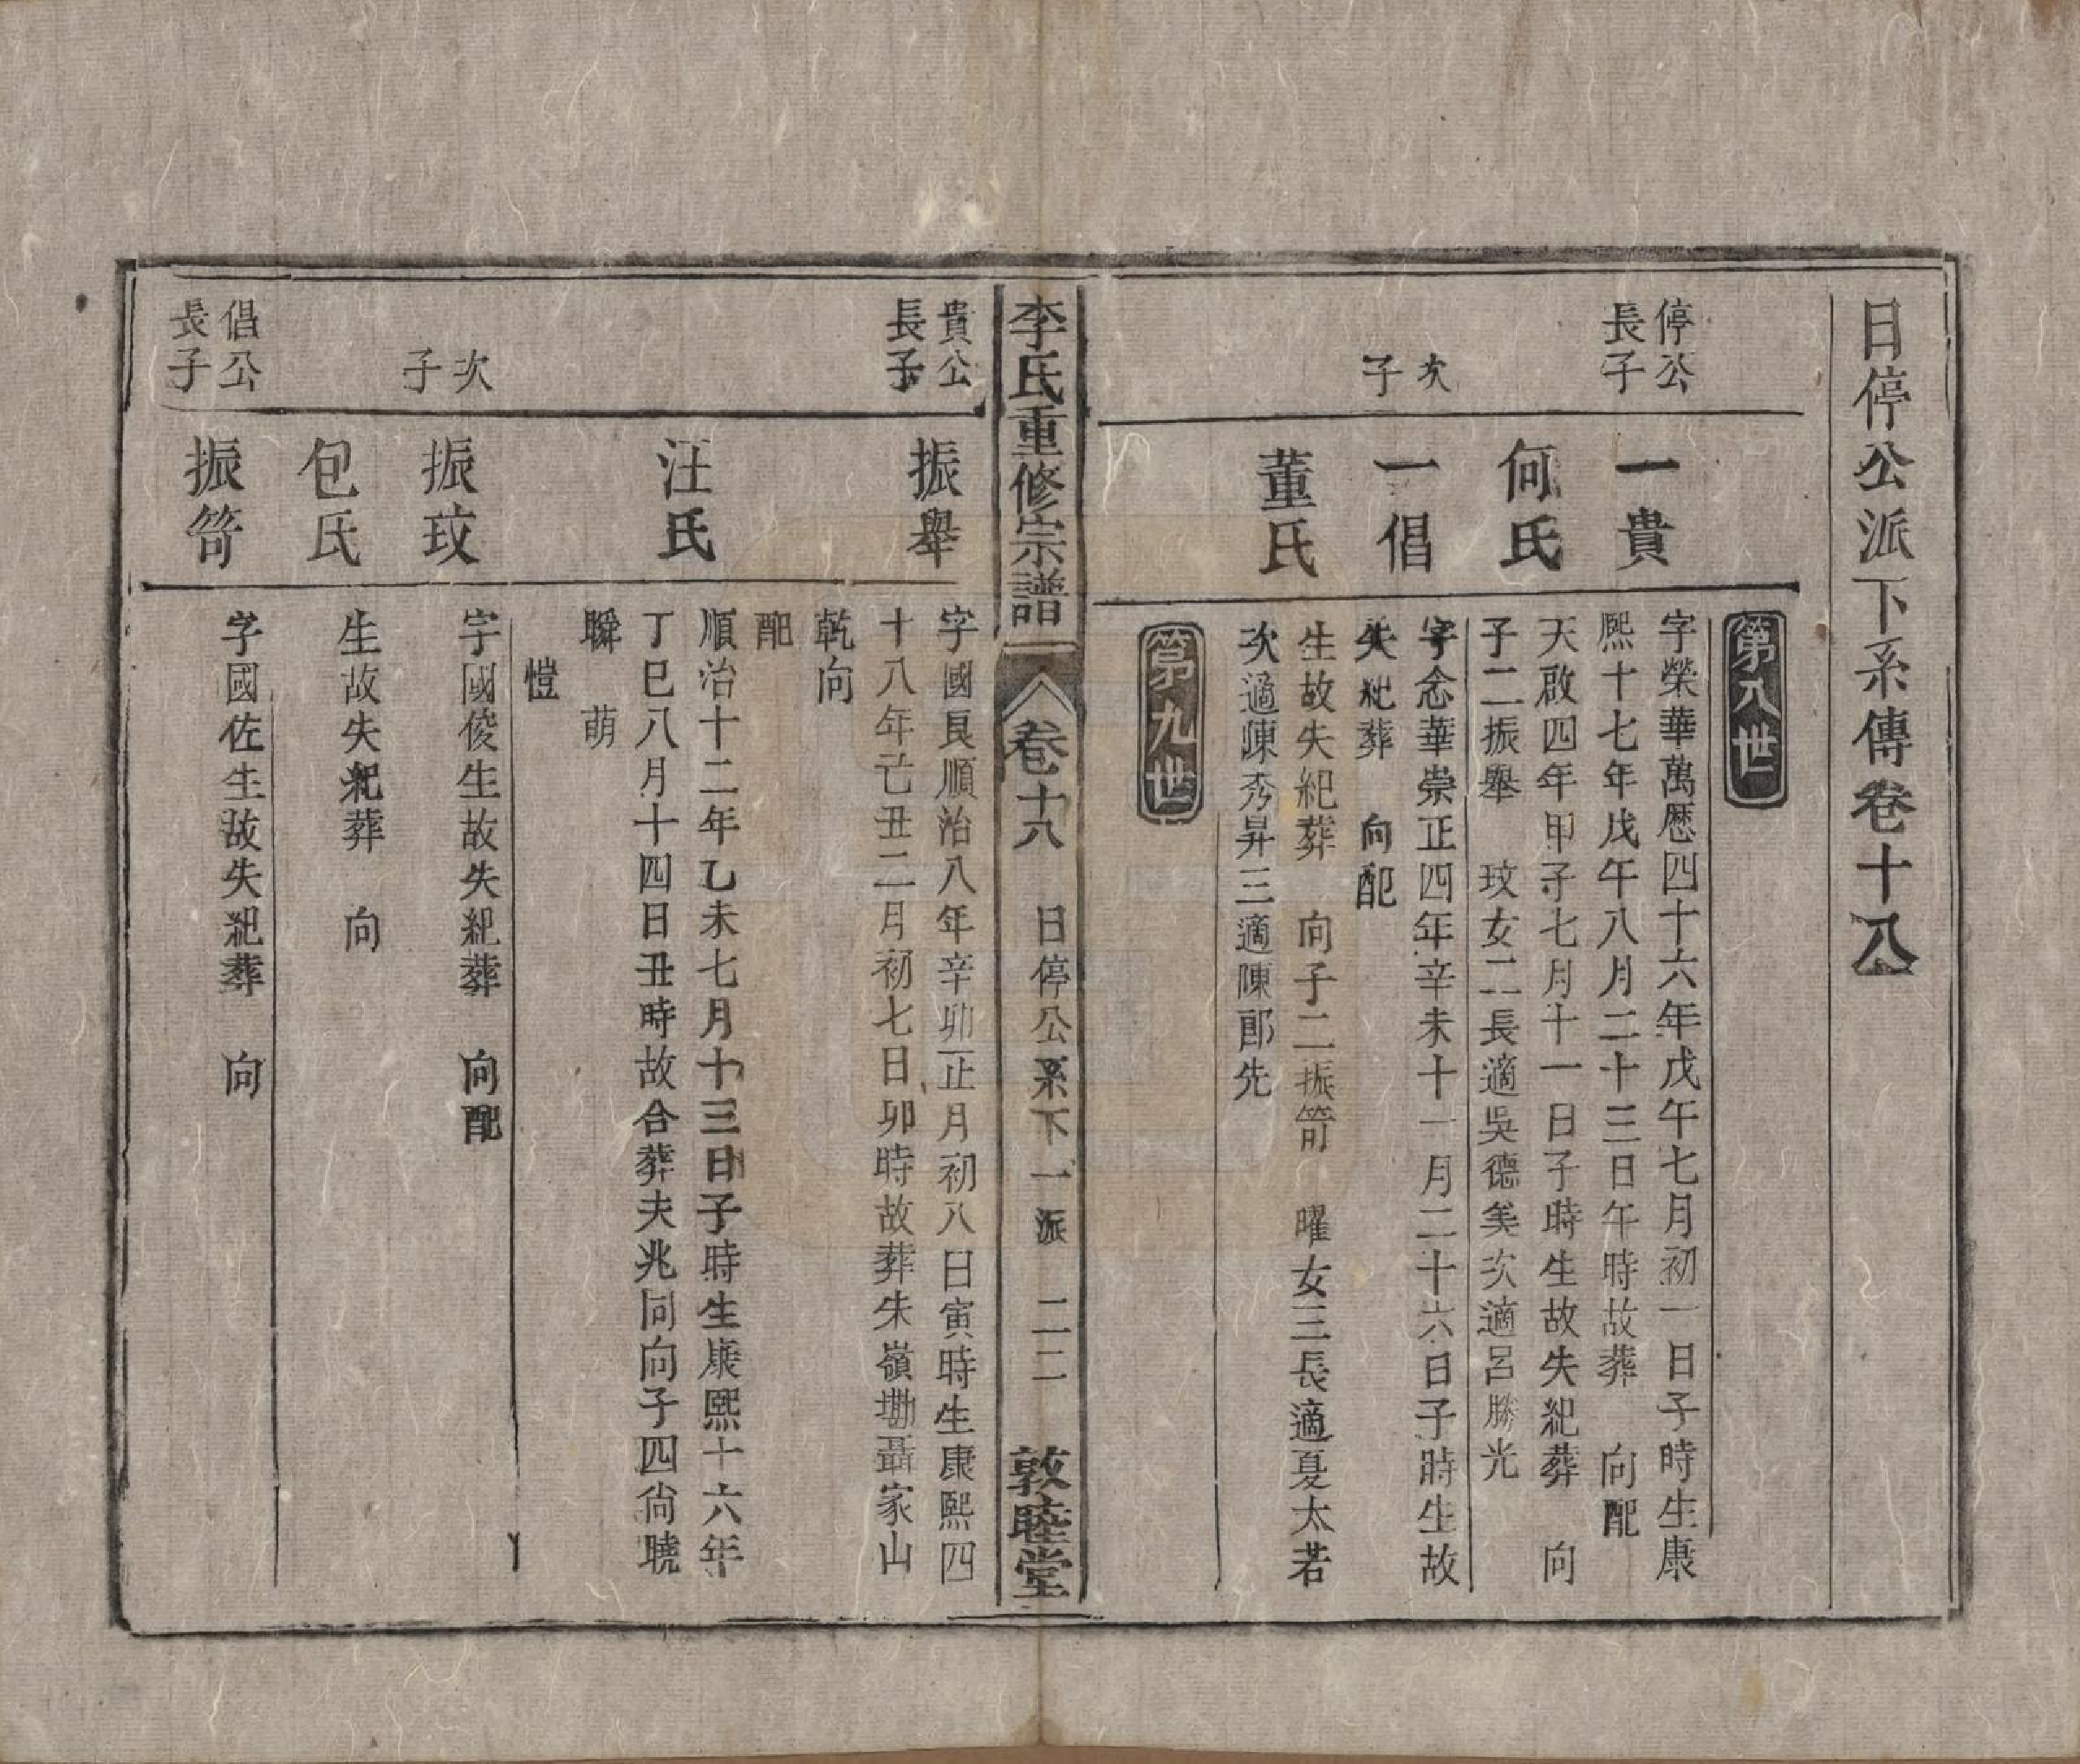 日停公派下系傳卷十八
第八世
停公
長子
一貴
字榮華萬歷四十六年戊午七月初一日子時生康
熙十七年戊午八月二十三日午時故葬　向配
何氏
天啟四年甲子七月十一日子時生故失紀葬　向
子二振舉　玟女二長適吳德美次適呂勝光
次
子
一倡
字念華崇正四年辛未十一月二十六日子時生故
失紀葬　向配
董氏
生故失紀葬　向子二振笴　曜女三長適夏太若
次適陳秀昇三適陳郎先
第九世
李氏重修宗譜
卷十八　日停公系下一派　二二
敦睦堂
貴公
長子
振舉
字國良順治八年辛卯正月初八日寅時生康熙四
十八年己丑二月初七日卯時故葬朱嶺塝聶家山
乾向
配
汪氏
順治十二年乙未七月十三日子時生康熙十六年
丁巳八月十四日丑時故合葬夫兆同向子四尙曉
聯　萌
愷
次
子
振玟
字國俊生故失紀葬　向配
包氏
生故失紀葬　向
倡公
長子
振笴
字國佐生故失紀葬　向